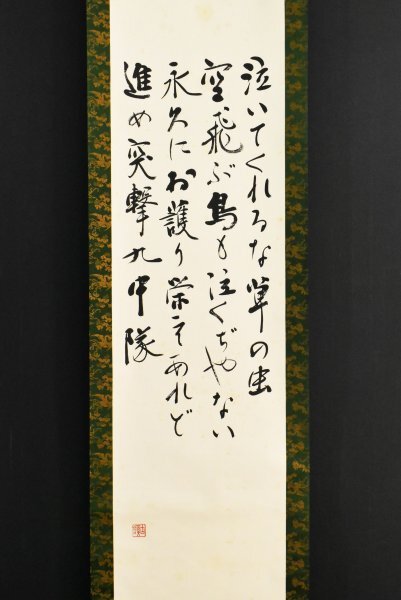 泣いてくれるな草の虫
空飛ぶ鳥も泣くぢやない
永久にお護り栄えあれど
進め突撃九中隊